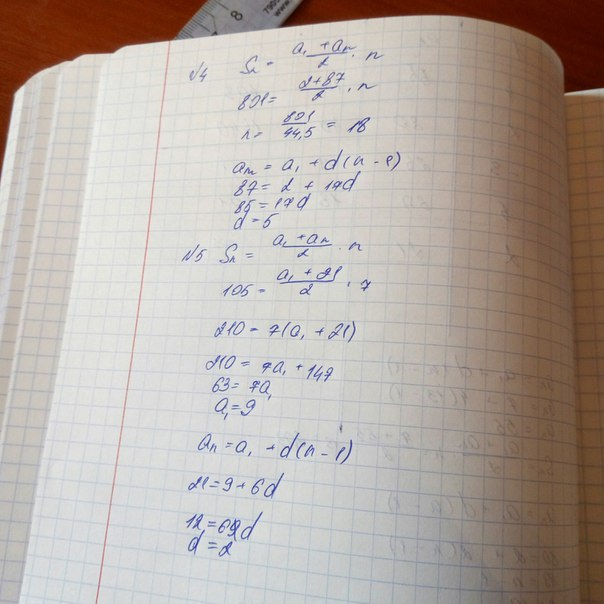 8
№4 Sn = (a₁ + an)/2 · n
801 = (2+87)/2 · n
n = 801/44,5 = 18
an = a₁ + d(n - 1)
87 = 2 + 17d
85 = 17d
d = 5
№5 Sn = (a₁ + an)/2 · n
105 = (a₁ + 21)/2 · 7
210 = 7(a₁ + 21)
210 = 7a₁ + 147
63 = 7a₁
a₁ = 9
an = a₁ + d(n - 1)
21 = 9 + 6d
12 = 6d
d = 2